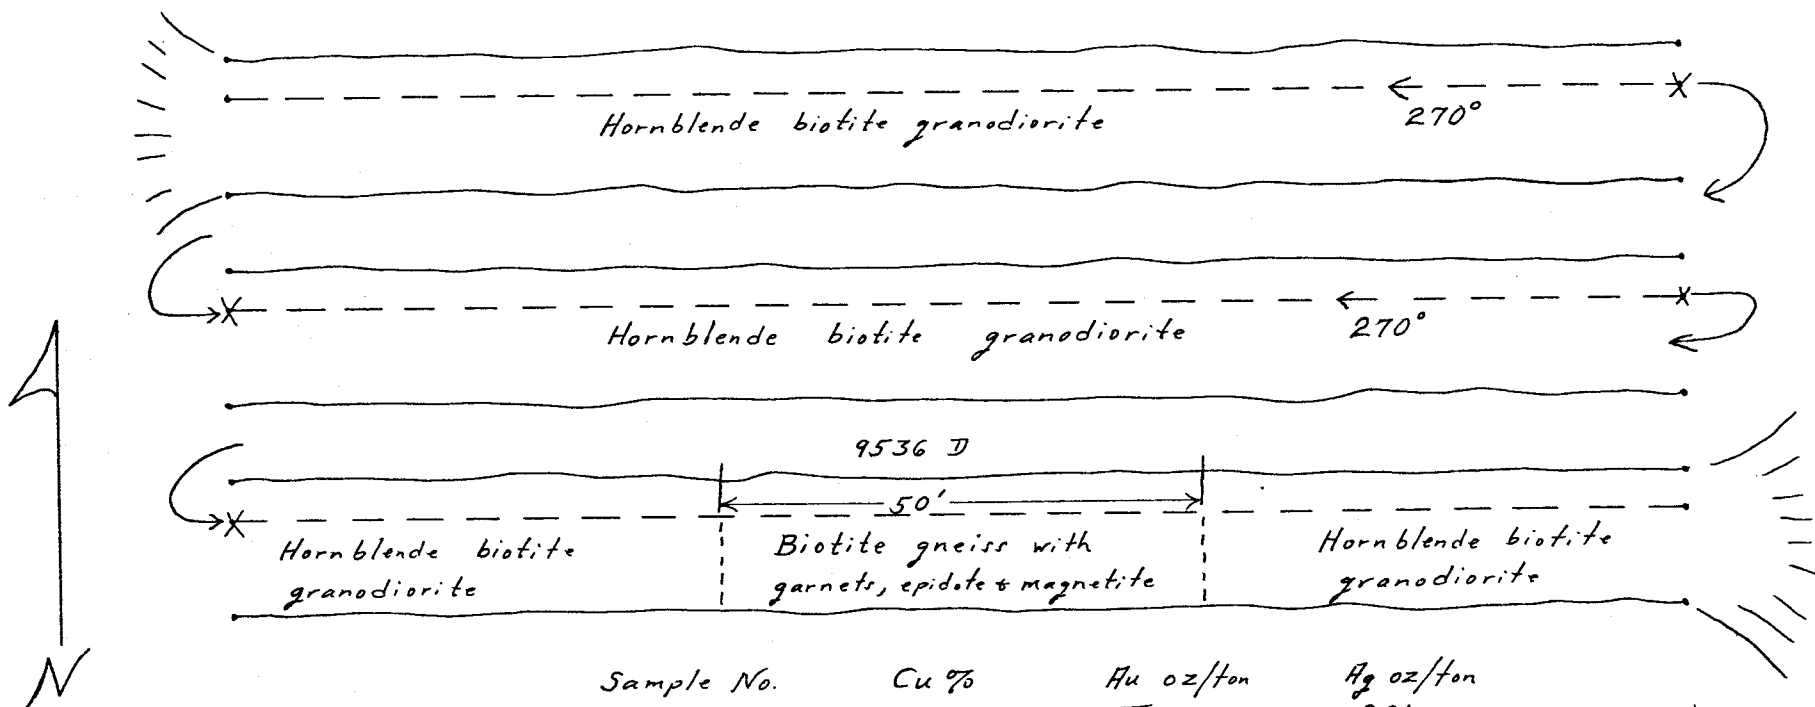 Hornblende biotite granodiorite
270°
Hornblende biotite granodiorite
270°
9536 D
50'
Hornblende biotite
granodiorite
Biotite gneiss with
garnets, epidote & magnetite
Hornblende biotite
granodiorite
N
Sample No. Cu % Au oz/ton Ag oz/ton